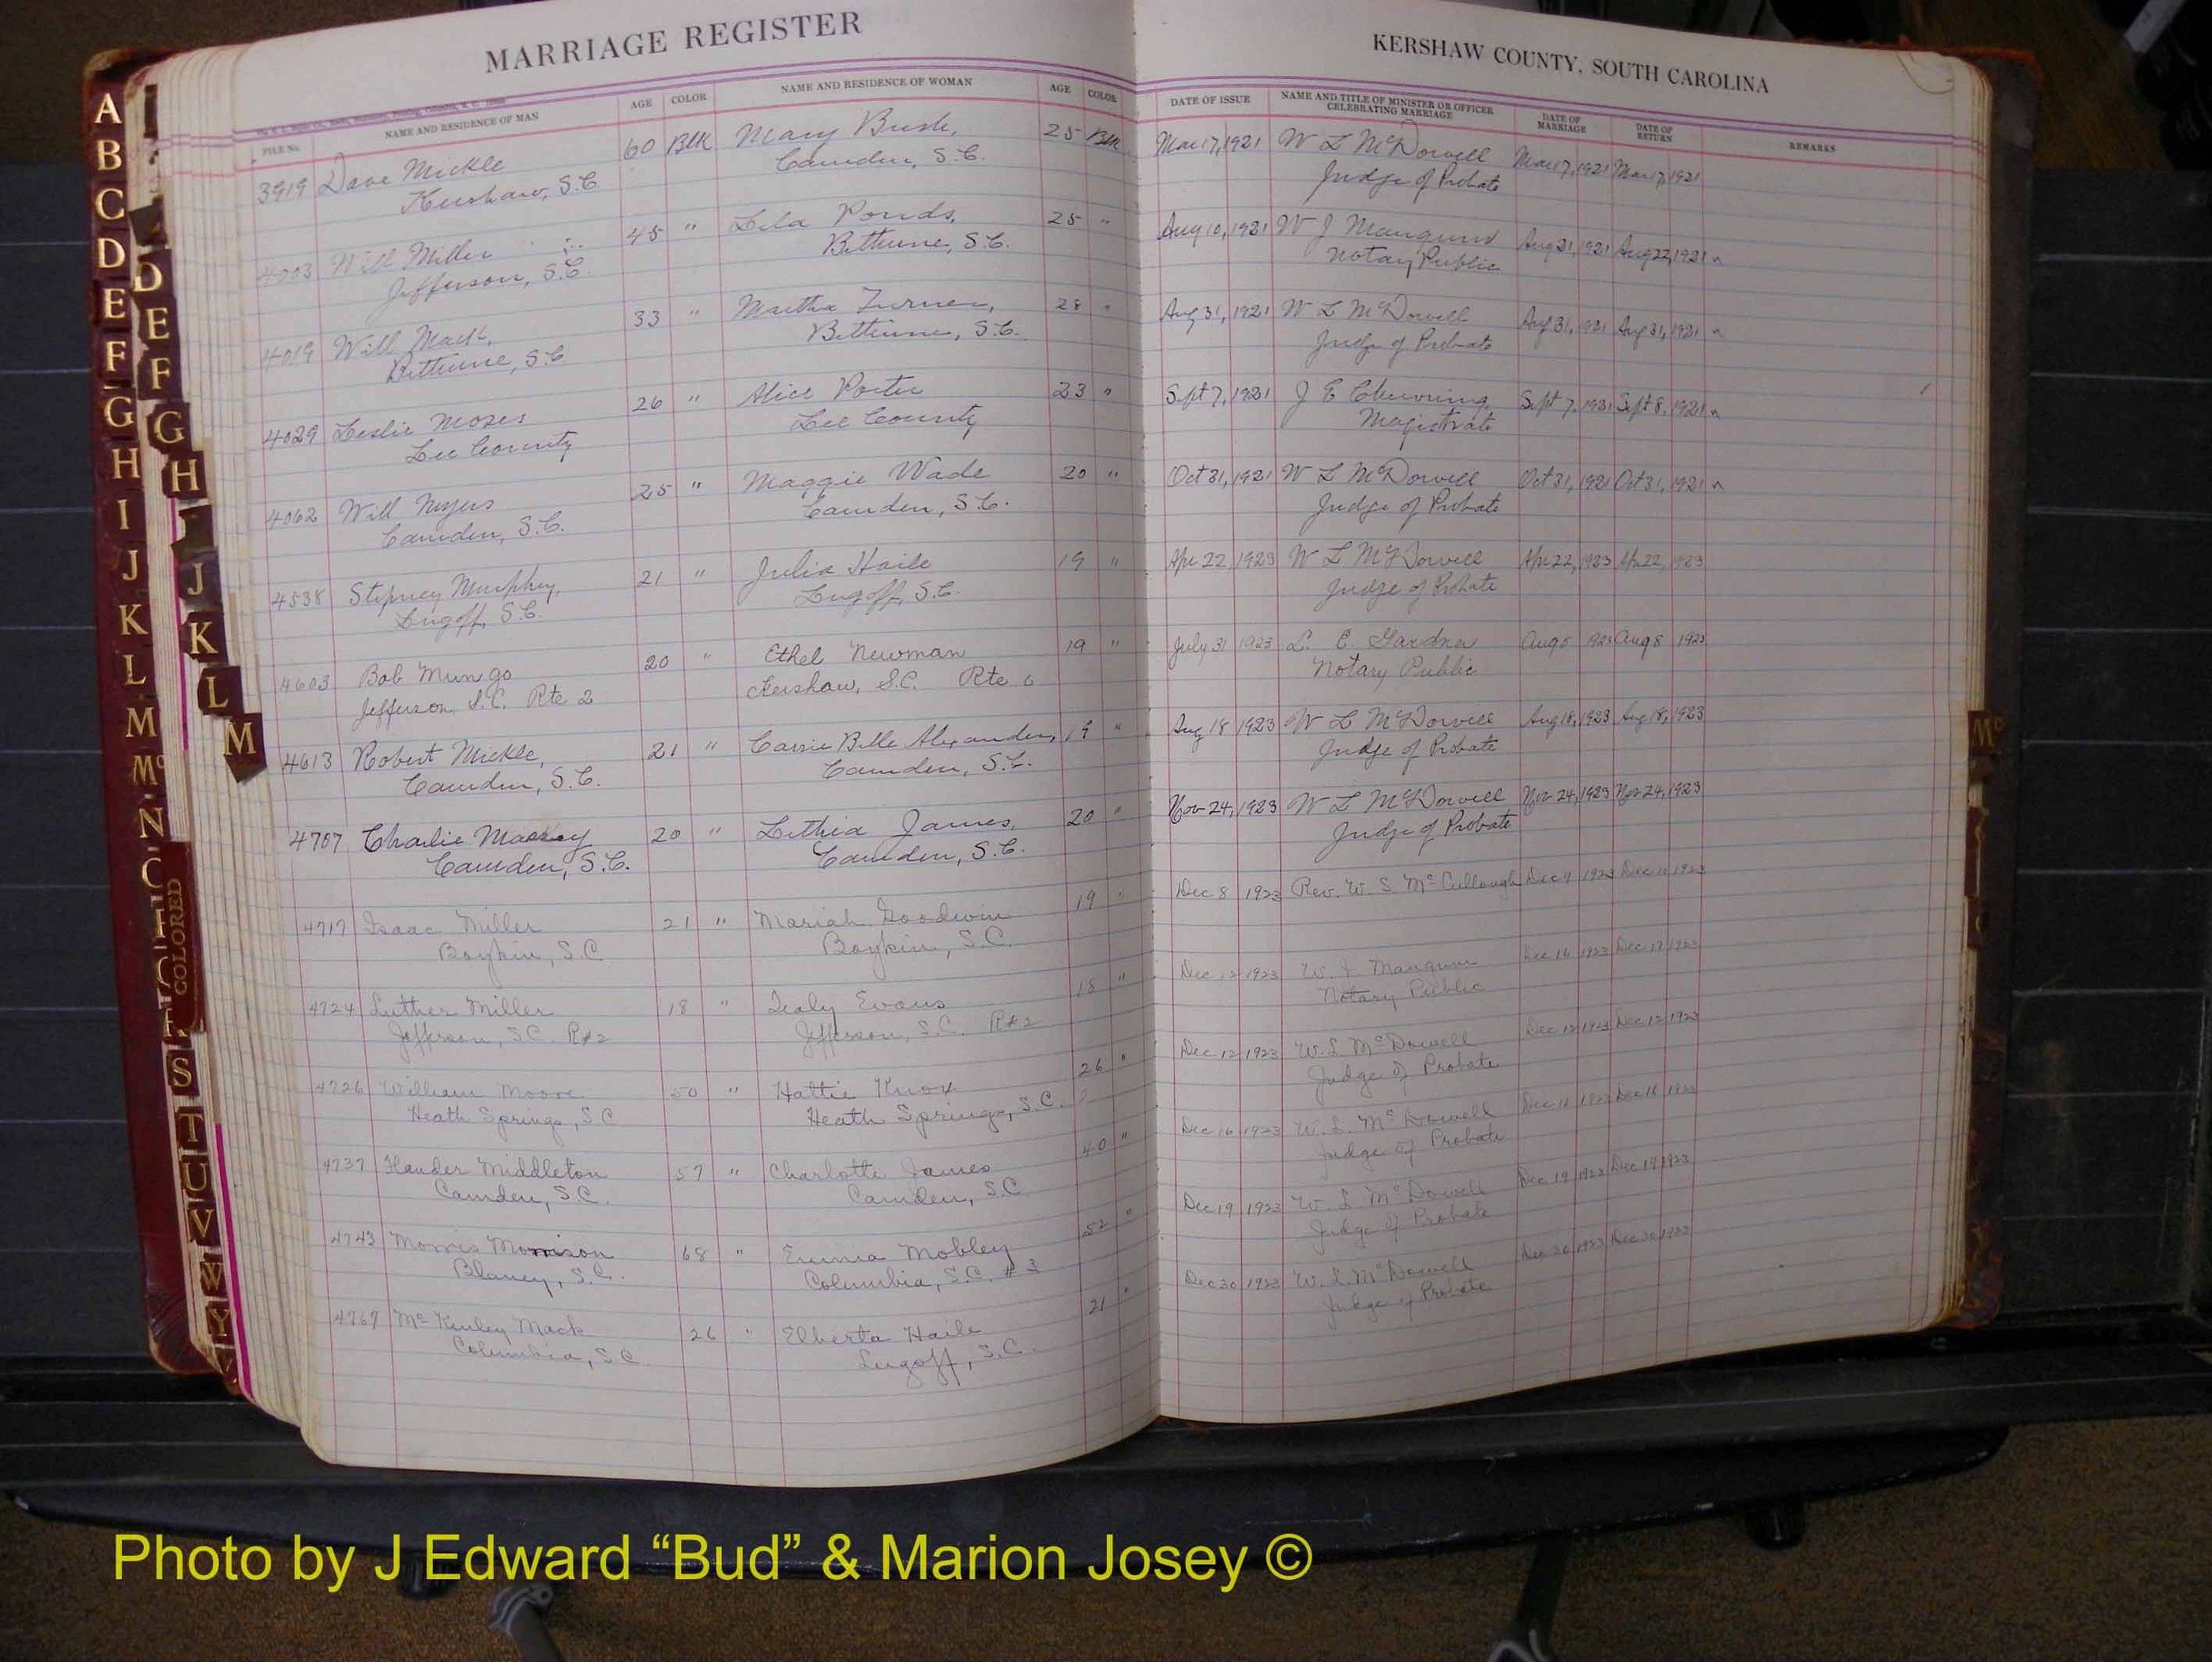 MARRIAGE REGISTER
KERSHAW COUNTY, SOUTH CAROLINA
FILE No. NAME AND RESIDENCE OF MAN AGE COLOR NAME AND RESIDENCE OF WOMAN AGE COLOR DATE OF ISSUE NAME AND TITLE OF MINISTER OR OFFICER CELEBRATING MARRIAGE DATE OF MARRIAGE DATE OF RETURN REMARKS
3919 Dave Mickle 60 Blk Mary Bush, 25 Blk Mar 17, 1921 W L McDowell Mar 17, 1921 Mar 17, 1921
Kershaw, S.C. Camden, S.C. Judge of Probate
4003 Will Miller 45 " Lela Pounds, 25 " Aug 10, 1921 W J Mangum Aug 21, 1921 Aug 22, 1921
Jefferson, S.C. Bethune, S.C. Notary Public
4019 Will Mack, 33 " Martha Turner, 28 " Aug 31, 1921 W L McDowell Aug 31, 1921 Aug 31, 1921
Bethune, S.C. Bethune, S.C. Judge of Probate
4029 Leslie Moses 26 " Alice Porter 23 " Sept 7, 1921 J E Chewning Sept 7, 1921 Sept 8, 1921
Lee County Lee County Magistrate
4062 Will Myers 25 " Maggie Wade 20 " Oct 31, 1921 W L McDowell Oct 31, 1921 Oct 31, 1921
Camden, S.C. Camden, S.C. Judge of Probate
4538 Stepney Murphey, 21 " Julia Haile 19 " Apr 22, 1923 W L McDowell Apr 22, 1923 Apr 22, 1923
Lugoff, S.C. Lugoff, S.C. Judge of Probate
4603 Bob Mungo 20 " Ethel Newman 19 " July 31 1923 L. E Gardner Aug 5 1923 Aug 8 1923
Jefferson, S.C. Rte 2 Kershaw, S.C. Rte 6 Notary Public
4613 Robert Mickle, 21 " Carrie Belle Alexander, 19 " Aug 18 1923 W L McDowell Aug 18, 1923 Aug 18, 1923
Camden, S.C. Camden, S.C. Judge of Probate
4707 Charlie Massey 20 " Lethia James, 20 " Nov 24, 1923 W L McDowell Nov 24, 1923 Nov 24, 1923
Camden, S.C. Camden, S.C. Judge of Probate
4717 Isaac Miller 21 " Mariah Goodwin 19 " Dec 8 1923 Rev. W. S. McCullough Dec 9 1923 Dec 11 1923
Boykin, S.C Boykin, S.C.
4724 Luther Miller 18 " Evans 18 " Dec 12 1923 W. J Mangum Dec 16 1923 Dec 17 1923
Jefferson, S.C. R#2 Jefferson, S.C. R#2 Notary Public
4726 William Moore 50 " Hattie Knox 26 " Dec 12 1923 W. L McDowell Dec 12 1923 Dec 12 1923
Heath Springs, S.C Heath Springs, S.C. Judge of Probate
4737 Middleton 57 " Charlotte James 40 " Dec 16 1923 W. L. McDowell Dec 16 1923 Dec 16 1923
Camden, S.C. Camden, S.C. Judge of Probate
4743 Morris Morrison 68 " Emma Mobley 52 " Dec 19 1923 W. L McDowell Dec 19 1923 Dec 19 1923
Blaney, S.C. Columbia, S.C. # 3 Judge of Probate
4767 McKinley Mack 26 " Elberta Haile 21 " Dec 30 1923 W. L. McDowell Dec 30 1923 Dec 30 1923
Columbia, S.C. Lugoff, S.C. Judge of Probate
A
B
C
D
E
F
G
H
I
J
K
L
M
Mc
N
S
T
U
V
W
Y
D
E
F
G
H
J
K
L
M
COLORED
Mc
Photo by J Edward “Bud” & Marion Josey ©